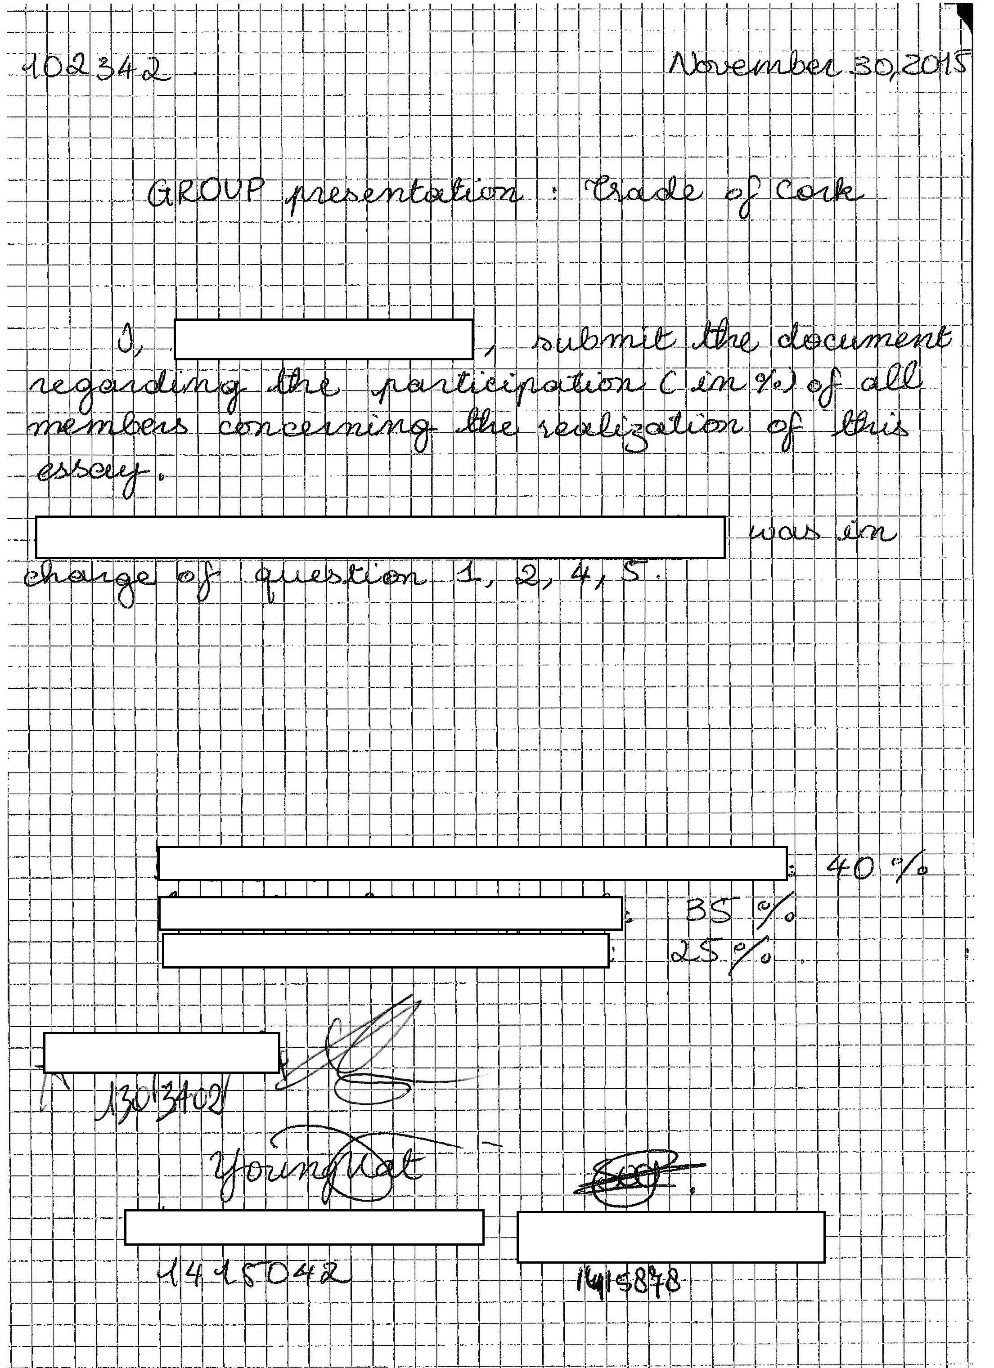 102342
November 30, 2015
GROUP presentation : Trade of Cork
I, , submit the document
regarding the participation (in %) of all
members concerning the realization of this
essay.
was in
charge of question 1, 2, 4, 5.
: 40 %
: 35 %
: 25 %
13013402
Young
1415042
1415878